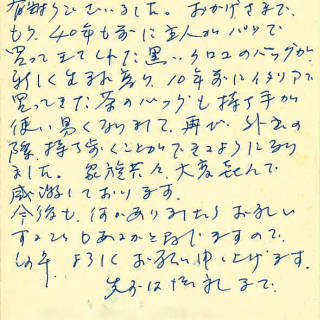 有難うございました。おかげさまで、
もう40年も前に主人がパリで
買って来てくれた黒いクロコのバッグが
新しく生まれ変り、10年前にイタリアで
買ってきた茶のバッグも持ち手が
使い易くなりまして、再び外出の
際、持ち歩くことができるようになり
ました。家族共々、大変喜んで
感謝しております。
今後も、何かありましたらお願い
することもあるかと存じますので、
よろしくお願い申し上げます。
先ずは御礼まで。